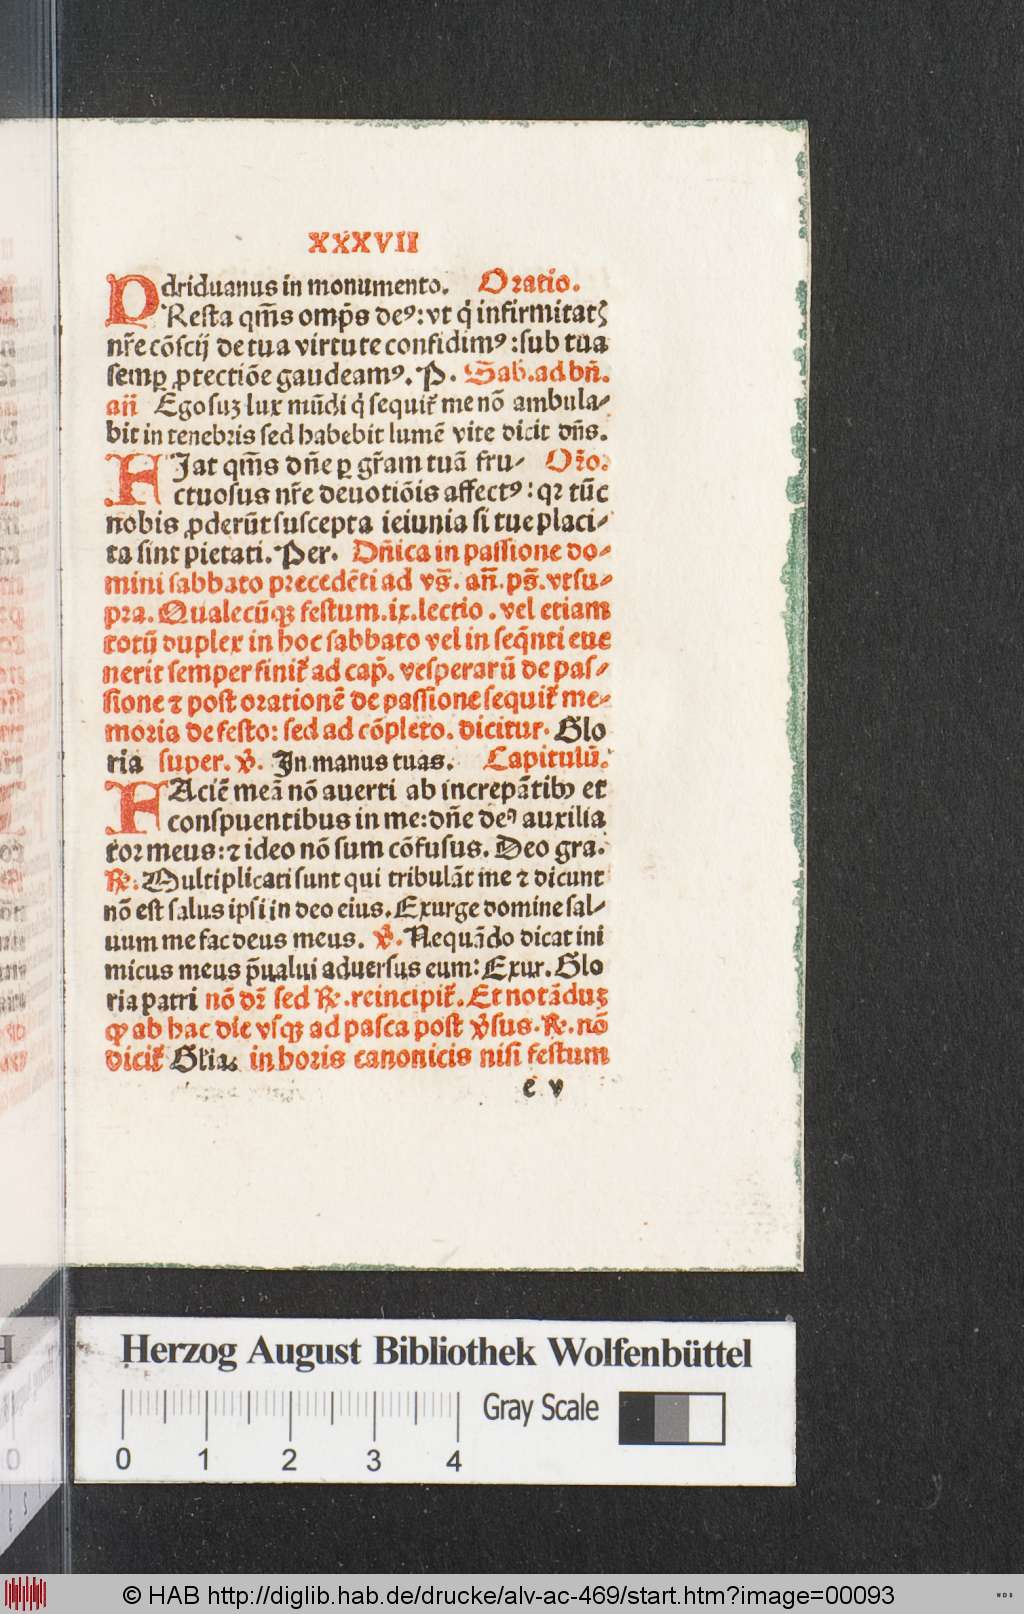 XXXVII
driduanus in monumento. Oratio.
PResta qm̄s omp̄s deꝰ: vt q̇ infirmitatꝫ
nr̄e cōscij de tua virtute confidimꝰ: sub tua
semꝑ ꝓtectiōe gaudeamꝰ. P. Sab. ad bn̄.
añ Ego suꝫ lux mūdi q̇ sequit᷑ me nō ambula⸗
bit in tenebris sed habebit lumē vite dicit dn̄s.
FIat qm̄s dn̄e ꝑ gr̄am tuā fru⸗ Or̄o.
ctuosus nr̄e deuotiōis affectꝰ: qꝛ tūc
nobis ꝓderūt suscepta ieiunia si tue placi⸗
ta sint pietati. Per. Dn̄ica in passione do⸗
mini sabbato precedēti ad vs̄. an̄. ps̄. vt su⸗
pra. Qualecūqꝫ festum. ix. lectio. vel etiam
totū duplex in hoc sabbato vel in seq̄nti eue
nerit semper finit᷑ ad cap̄. vesperarū de pas⸗
sione ⁊ post orationē de passione sequit᷑ me⸗
moria de festo: sed ad cōpleto. dicitur. Glo
ria super. ꝟ. In manus tuas. Capitulū.
FAciē meā nō auerti ab increpātibꝰ et
conspuentibus in me: dn̄e deꝰ auxilia
tor meus: ⁊ ideo nō sum cōfusus. Deo gra.
℞. Multiplicati sunt qui tribulāt me ⁊ dicunt
nō est salus ipsi in deo eius. Exurge domine sal⸗
uum me fac deus meus. ꝟ. Nequādo dicat ini
micus meus p̄ualui aduersus eum: Exur. Glo
ria patri nō dr̄ sed ℞. reincipit᷑. Et notāduꝫ
ꝙ ab hac die vsqꝫ ad pasca post ꝟsus. ℞. nō
dicit᷑ Glia. in horis canonicis nisi festum
e v
Herzog August Bibliothek Wolfenbüttel
0 1 2 3 4 Gray Scale
© HAB http://diglib.hab.de/drucke/alv-ac-469/start.htm?image=00093